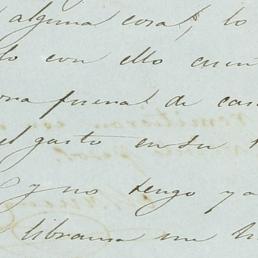 alguna cosa, lo
lo con ello cuen
fuera de cas
el gasto en su
y no tengo ya
libranza un